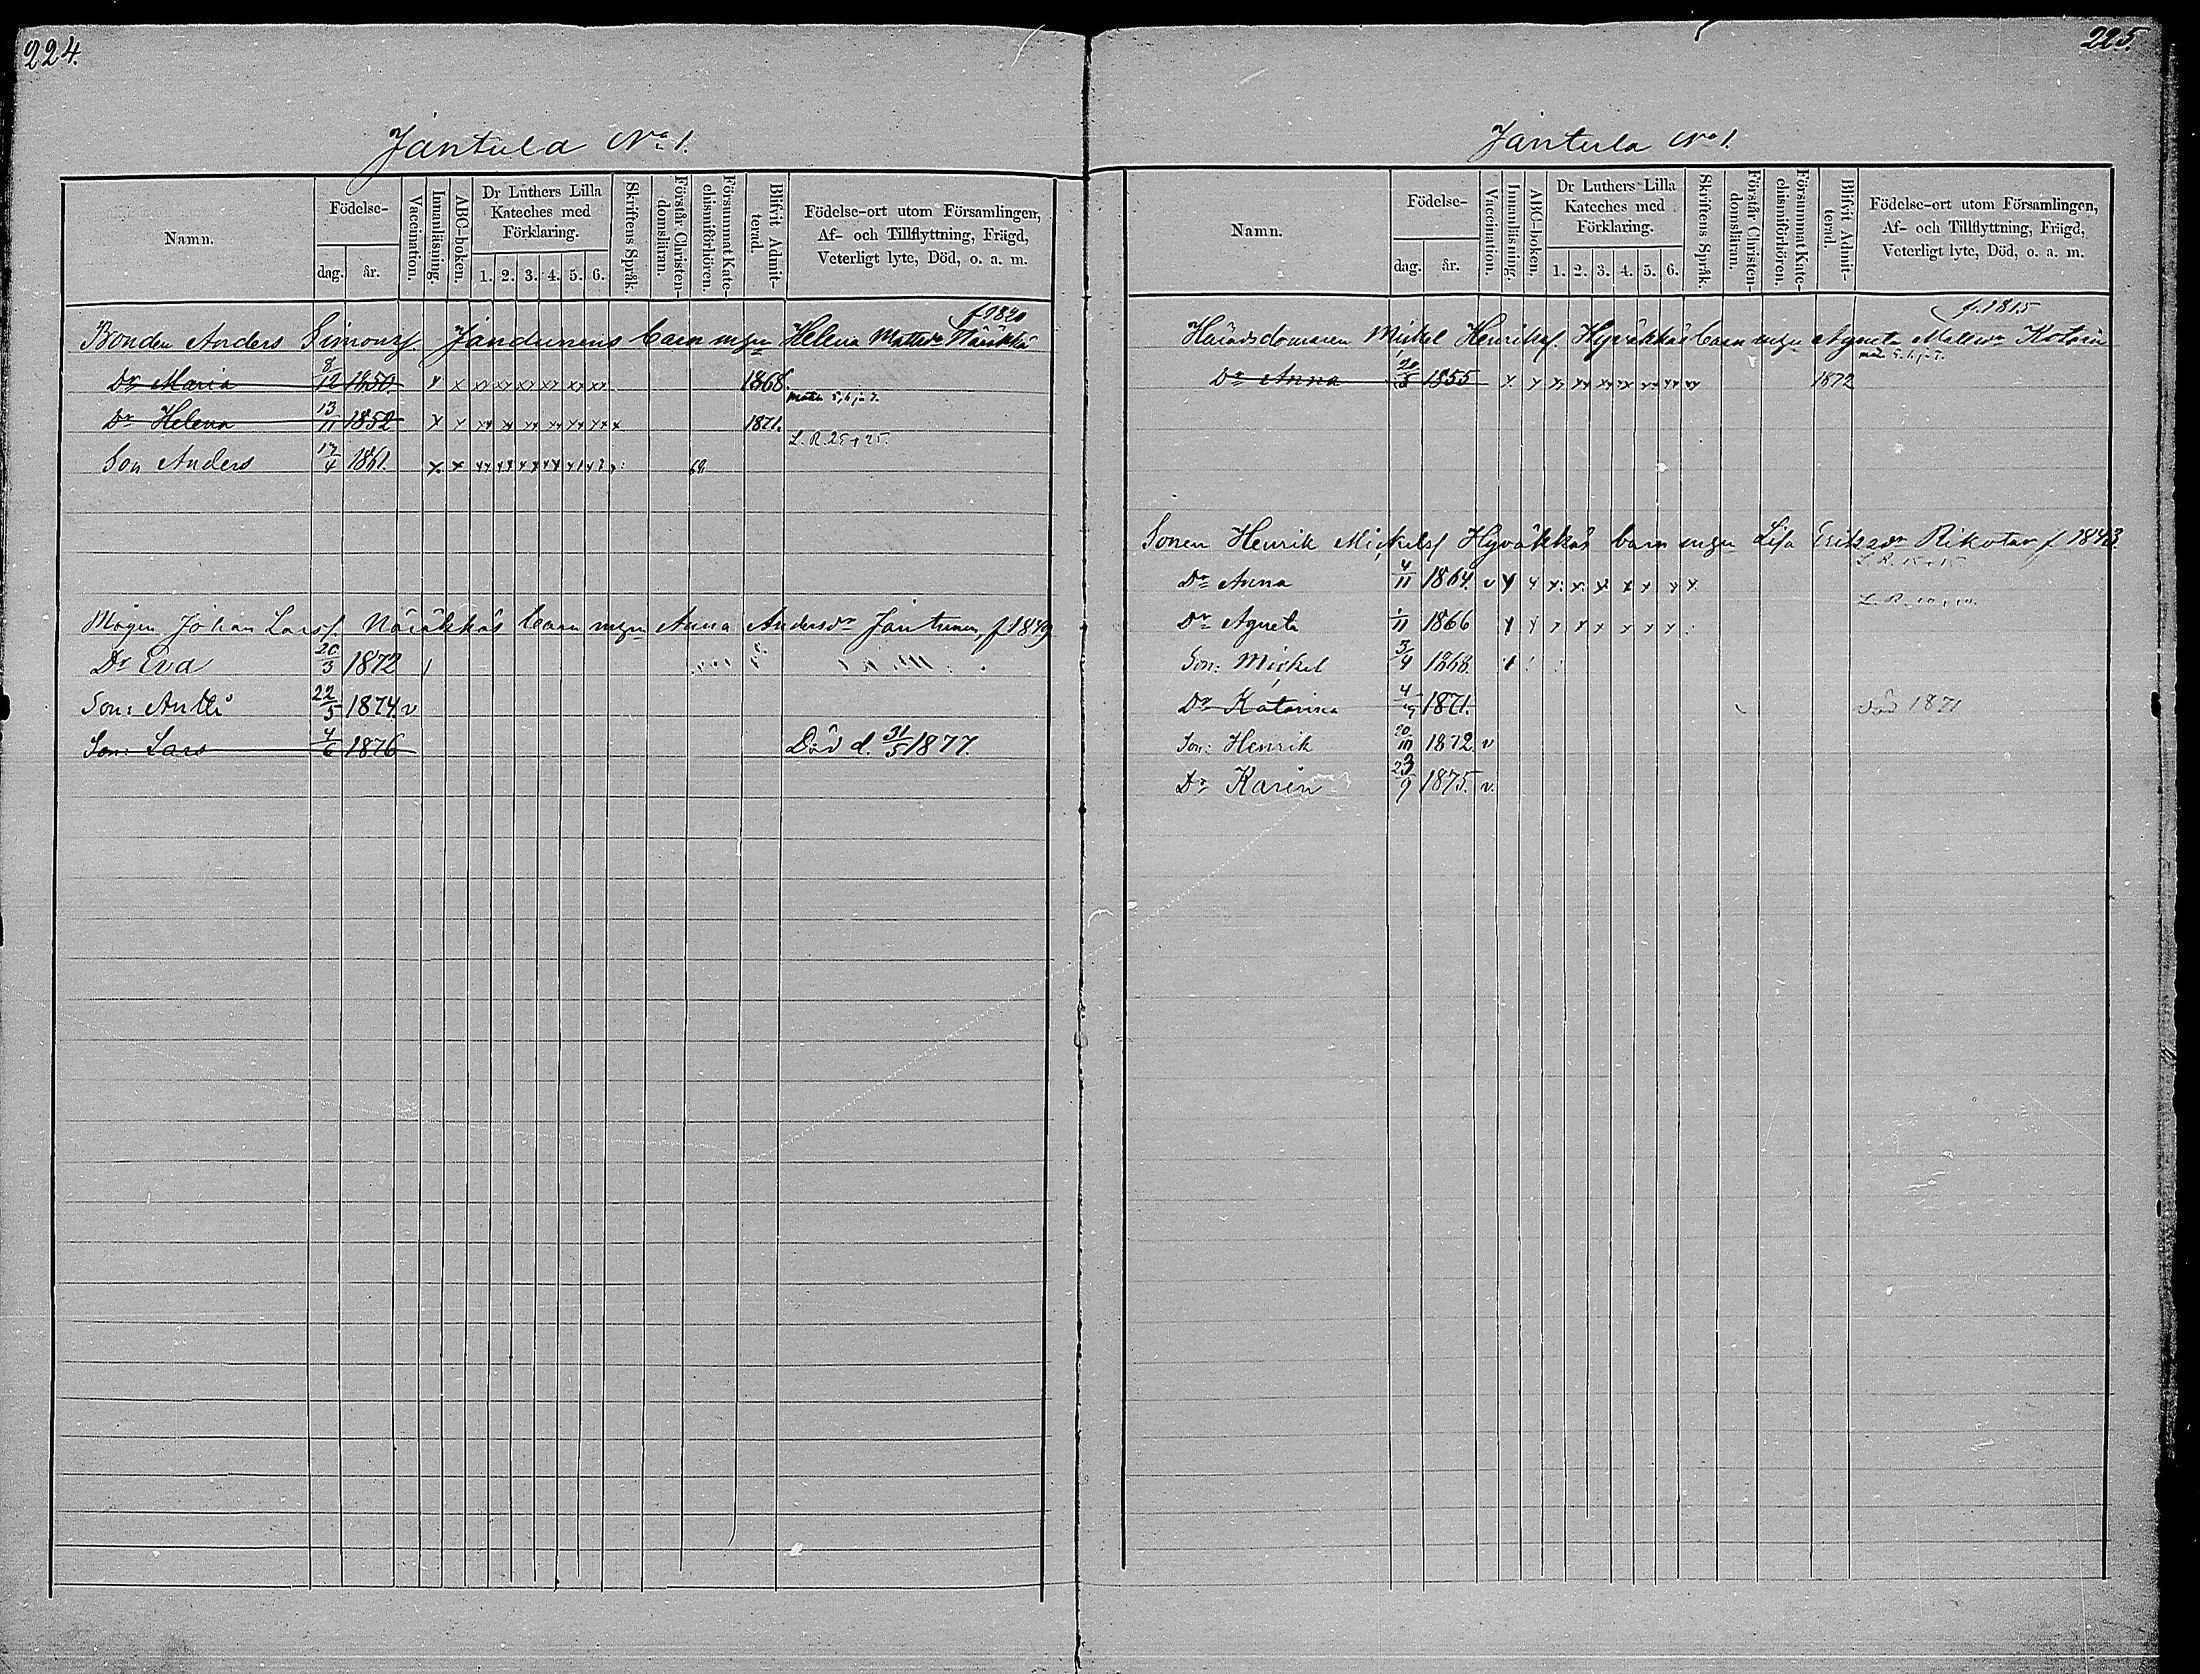 224.
Jäntula No 1.
Namn.
Födelse-
dag.
år.
Vaccination.
Innanläsning.
ABC-boken.
Dr Luthers Lilla Kateches med Förklaring.
1. 2. 3. 4. 5. 6.
Skriftens Språk.
Förstår Christendomsläran.
Försummat Katechismiförhören.
Blifvit Admitterad.
Födelse-ort utom Församlingen, Af- och Tillflyttning, Frägd, Veterligt lyte, Död, o. a. m.
f. 1820
Bonden Anders Simonsf. Jandunens barn m hu Helena Mattsdr
Dr Maria 8/12 1850. x x xx xx xx xx xx xx 1868.
Dr Helena 13/11 1852 x x xx x xx xx xx xx x 1871.
L. R. 25 + 25.
Son Anders 17/4 1861.
Mågen Johan Larsf. Näräkkäs barn m hu Anna Andersdr Jäntunen, f 1849
Dr Eva 20/3 1872
Son: Antti 22/5 1874. v
Son: Lars 4/6 1876 Död d. 31/5 1877.
225.
Jäntula No 1.
Namn.
Födelse-
dag.
år.
Vaccination.
Innanläsning.
ABC-boken.
Dr Luthers Lilla Kateches med Förklaring.
1. 2. 3. 4. 5. 6.
Skriftens Språk.
Förstår Christendomsläran.
Försummat Katechismiförhören.
Blifvit Admitterad.
Födelse-ort utom Församlingen, Af- och Tillflyttning, Frägd, Veterligt lyte, Död, o. a. m.
f. 1815
Häradsdomaren Mickel Henriksf. Hyväkkäs barn m hu Agneta Mattsdr
Dr Anna 1855 1872
Sonen Henrik Mickelsf Hyväkkäs barn m hu Lisa Eriksdr Rikotar f 1843.
Dr Anna 4/11 1864. v
Dr Agneta 1/11 1866
Son: Mickel 3/4 1868.
Dr Katarina 1871. Död 1871
Son: Henrik 20/10 1872. v
Dr Karin 23/9 1875. v.